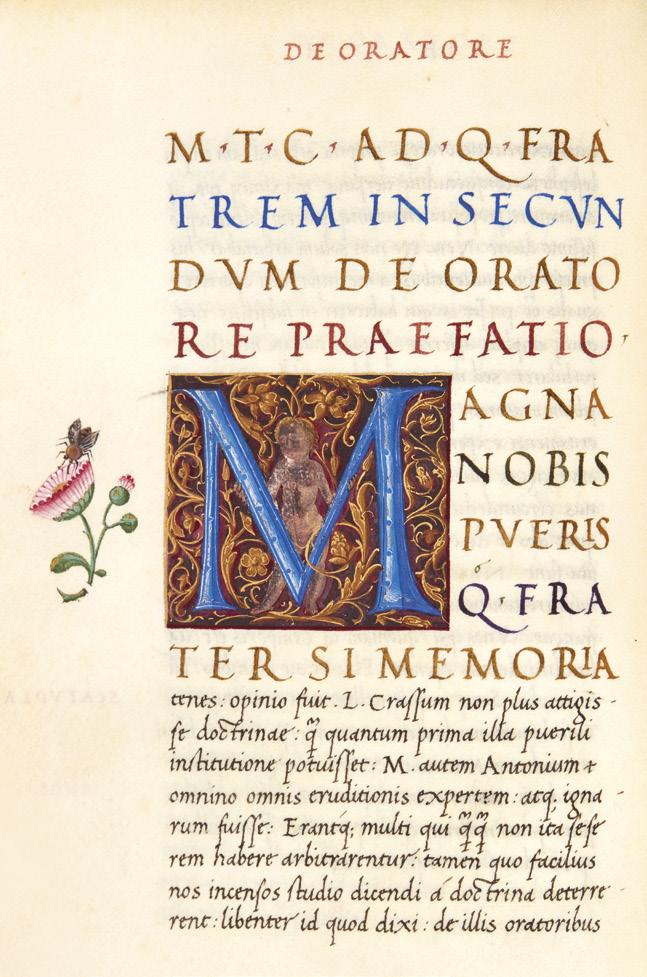 DE ORATORE
M·T·C·AD·Q·FRA
TREM IN SECVN
DVM DE ORATO
RE PRAEFATIO,
MAGNA
NOBIS
PVERIS
Q·FRA
TER SI MEMORIA
tenes: opinio fuit. L. Crassum non plus attigis-
se doctrinae: q̃ quantum prima illa puerili
institutione potuisset: M. autem Antonium +
omnino omnis eruditionis expertem: atq. igna-
rum fuisse: Erantq; multi qui q̃q̃ non ita sese
rem habere arbitrarentur: tamen quo facilius
nos incensos studio dicendi á doctrina deterre-
rent: libenter id quod dixi: de illis oratoribus